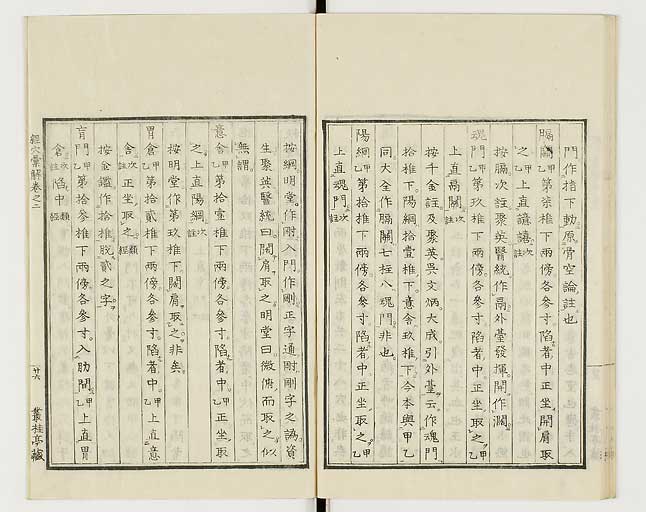 門作指下動原骨空論註也
膈關甲乙第柒椎下兩傍各參寸陷者中正坐開肩取
之甲乙上直譩譆次註
按膈次註聚英醫統作鬲外臺發揮關作濶
魂門甲乙第玖椎下兩傍各參寸陷者中正坐取之甲乙
上直鬲關次註
按千金註及聚英吳文炳大成引外臺云作魂門
拾椎下陽綱拾壹椎下意舍玖椎下今本與甲乙
同大全作膈關七椎八魂門非也
陽綱甲乙第拾椎下兩傍各參寸陷者中正坐取之甲乙
上直魂門次註
按綱明堂作剛入門作剛正字通剛剛字之譌資
生聚英醫統曰闊肩取之明堂曰微俯而取之似
無謂
意舍甲乙第拾壹椎下兩傍各參寸陷者中正坐取
之上直陽綱次註
按明堂作第玖椎下闊肩取之非矣
胃倉甲乙第拾貳椎下兩傍各參寸陷者中甲乙上直意
舍次註正坐取之類經
按金鑑作拾椎脱貳之字
肓門甲乙第拾參椎下兩傍各參寸入肋間甲乙上直胃
倉次註陷中類經
經穴彙解卷之二
廿六
叢桂亭藏